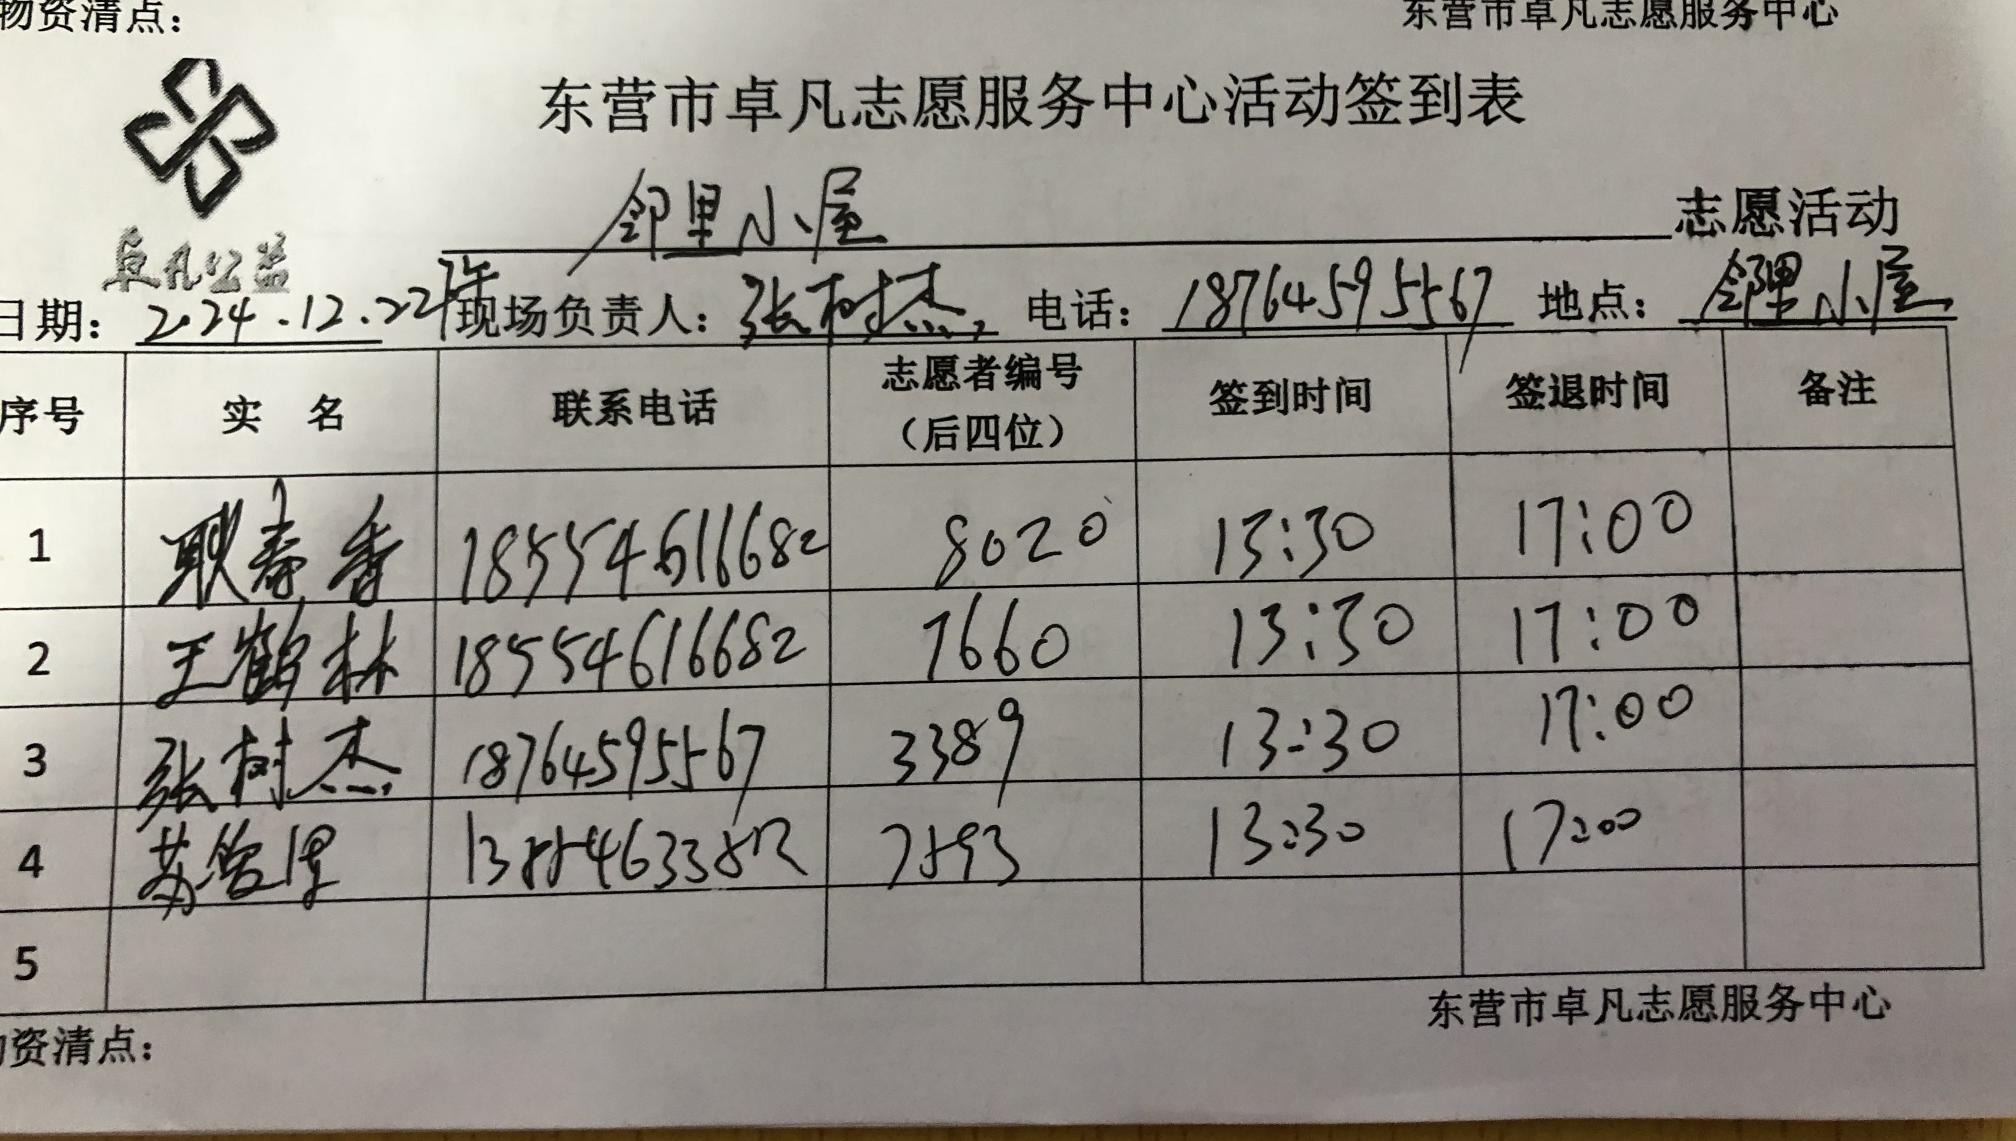 物资清点：
东营市卓凡志愿服务中心
东营市卓凡志愿服务中心活动签到表
邻里小屋 志愿活动
卓凡公益
日期：2024.12.22下午 现场负责人：张树杰 电话：18764595567 地点：邻里小屋
序号 实 名 联系电话 志愿者编号（后四位） 签到时间 签退时间 备注
1 耿春香 18554616682 8020 13:30 17:00
2 王鹤林 18554616682 7660 13:30 17:00
3 张树杰 18764595567 3389 13:30 17:00
4 苏 7593 13:30 17:00
5
东营市卓凡志愿服务中心
物资清点：